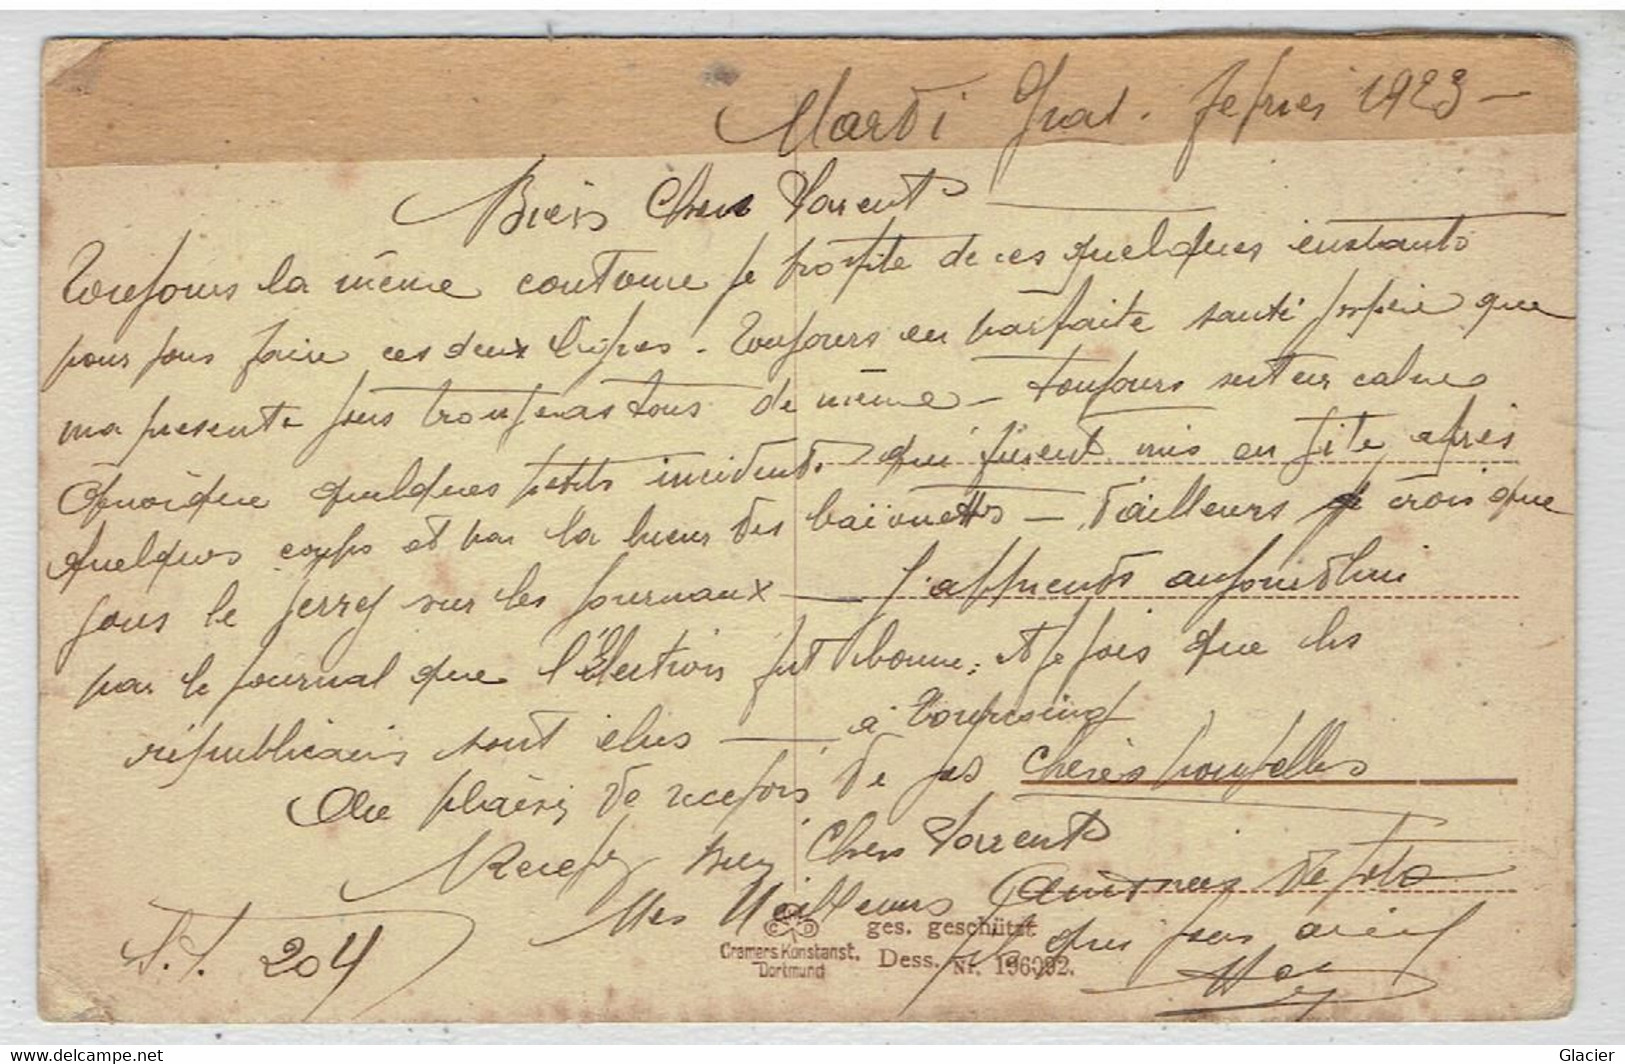 Mardi Gras. fevrier 1923 -
Biens Chers Parents
Toujours la même coutume je profite de ces quelques instants
pour vous faire ces deux lignes. Toujours en parfaite santé j'espère que
ma presente vous trouveras tous de même - toujours secteur calme
Quoique quelques petits incidents qui furent mis en fite après
quelques coups et par la lueur des baïonettes - d'ailleurs je crois que
vous le verrez sur les journaux - J'apprends aujourd'hui
par le journal que l'Election fut bonne, et je vois que les
républicains sont élus - à Tourcoing
Au plaisir de recevoir de vos Chères nouvelles
Recevez bien Chers Parents
Mes Meilleurs Caresses de fils
qui vous aime
S.P. 204
ges. geschützt
Cramers Kunstanst.
Dortmund
Dess. Nr. 196092.
Glacier